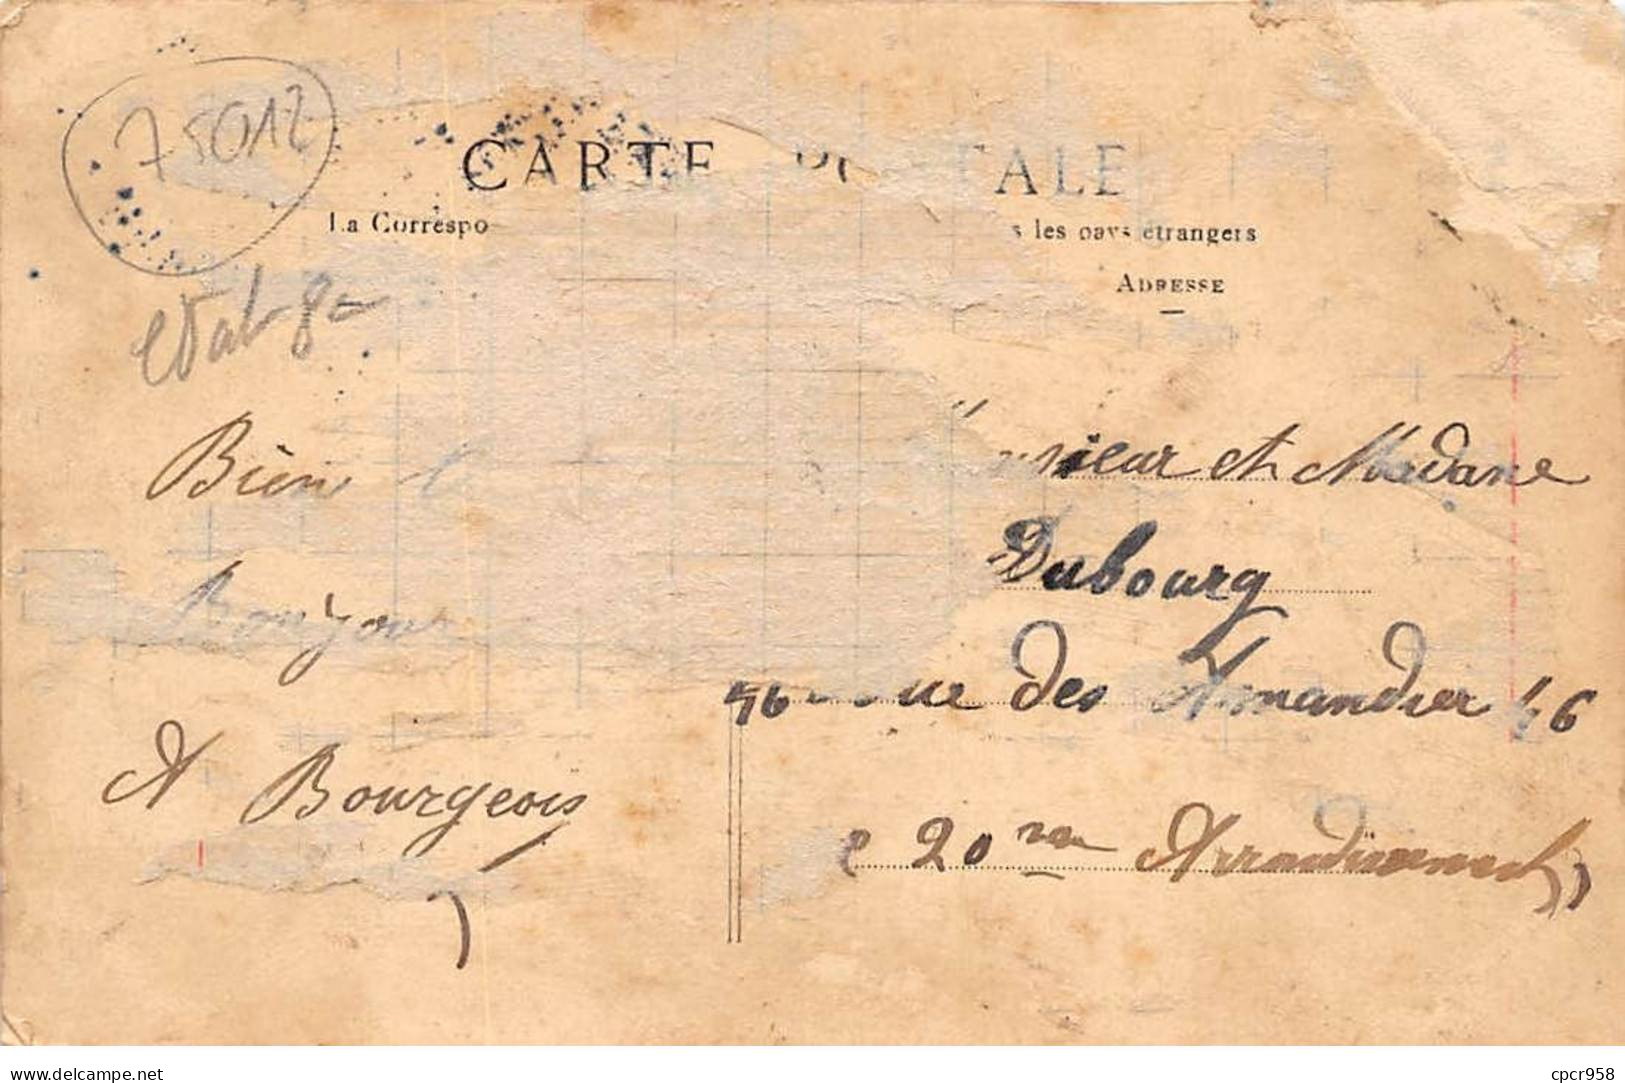 75012
CARTE TALE
La Correspo s les pays étrangers
ADRESSE
8=
Bien
Bonjour
A Bourgeois
sieur et Madane
Dubourg
46 ue des Amandier 46
20 me Arrondissement
www.delcampe.net
cpcr958